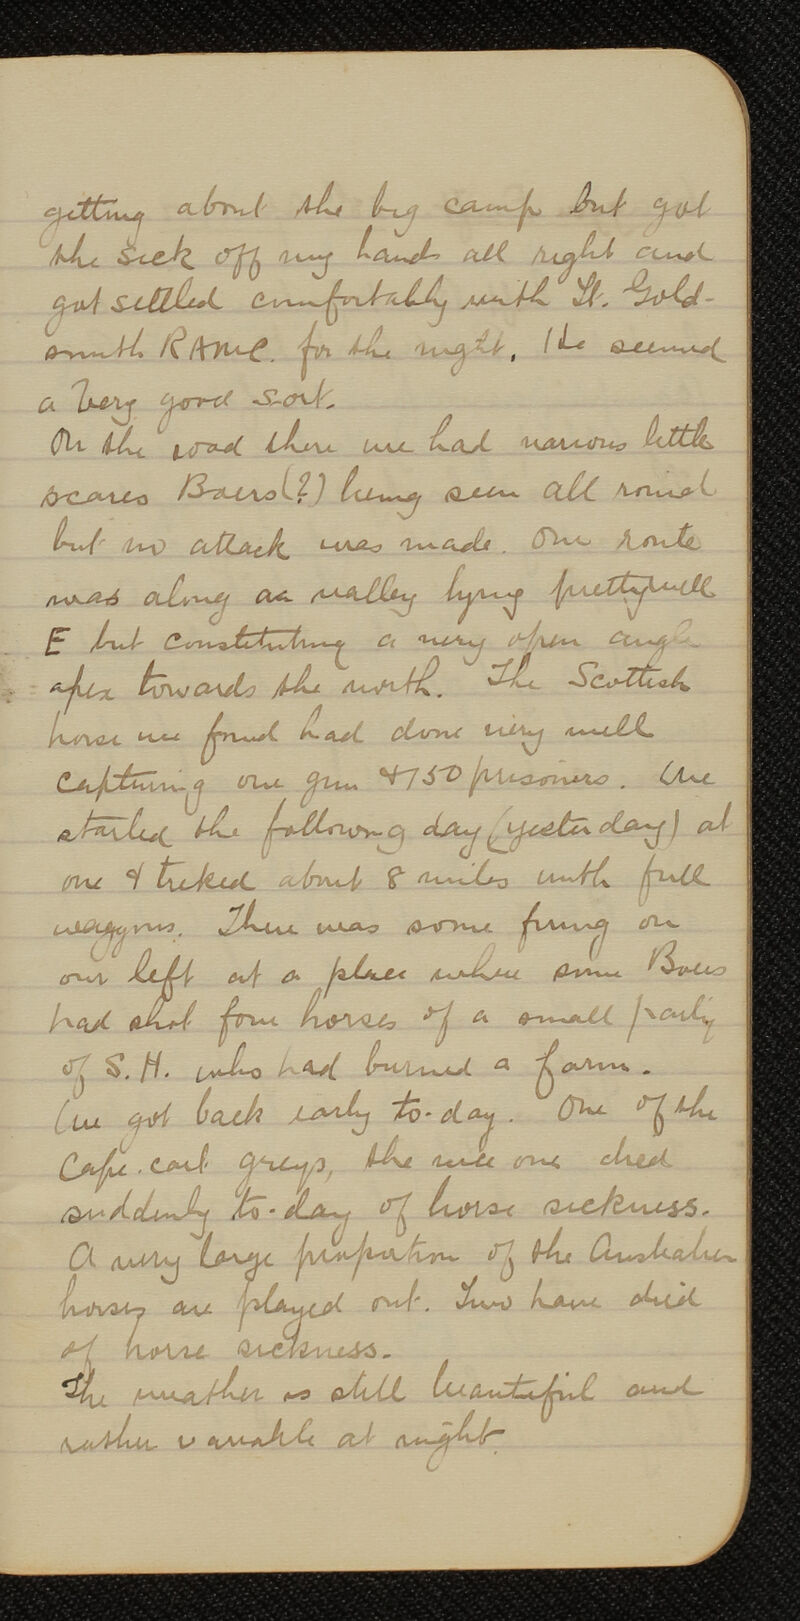 getting about the big camp but got
the sick off my hands all right and
got settled comfortably with Lt. Gold-
smith RAMC. for the night. He seemed
a very good sort.
On the road there we had various little
scares Boers (?) being seen all round
but no attack was made. Our route
was along aa valley lying pretty well
E but constituting a very open angle
apex towards the north. The Scottish
horse we found had done very well
capturing one gun & 150 prisoners. We
started the following day (yesterday) at
one & treked about 8 miles with full
waggons. There was some firing on
our left at a place where some Boers
had shot four horses of a small party
of S.H. who had burned a farm.
We got back early to-day. One of the
Cape-cart greys, the nice one died
suddenly to-day of horse sickness.
A very large proportion of the Australian
horses are played out. Two have died
of horse sickness.
The weather is still beautiful and
rather variable at night.